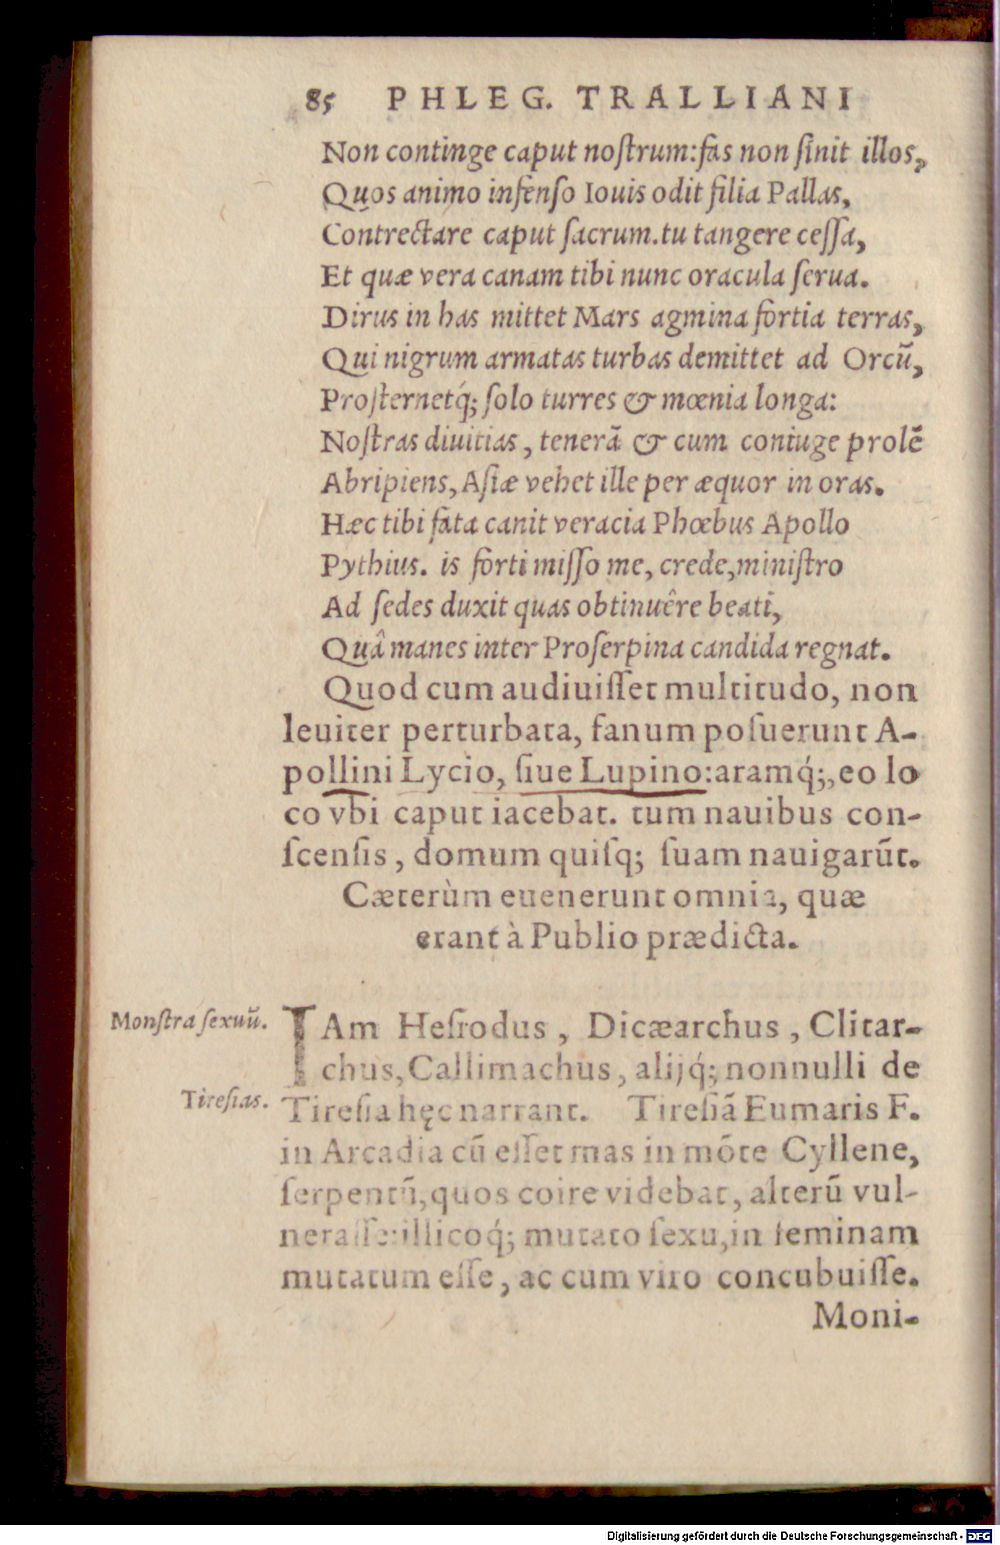 85 PHLEG. TRALLIANI
Non continge caput noſtrum:fas non ſinit illos,
Quos animo infenſo Iouis odit filia Pallas,
Contrectare caput ſacrum.tu tangere ceſſa,
Et quæ vera canam tibi nunc oracula ſerua.
Dirus in has mittet Mars agmina fortia terras,
Qui nigrum armatas turbas demittet ad Orcũ,
Proſternetq́; ſolo turres & mœnia longa:
Noſtras diuitias, tenerã & cum coniuge prolẽ
Abripiens, Aſiæ vehet ille per æquor in oras.
Hæc tibi fata canit veracia Phœbus Apollo
Pythius. is forti miſſo me, crede,miniſtro
Ad ſedes duxit quas obtinuêre beati,
Quâ manes inter Proſerpina candida regnat.
Quod cum audiuiſſet multitudo, non
leuiter perturbata, fanum poſuerunt A-
pollini Lycio, ſiue Lupino:aramq́;, eo lo
co vbi caput iacebat. tum nauibus con-
ſcenſis, domum quiſq; ſuam nauigarũt.
Cæterùm euenerunt omnia, quæ
erant à Publio prædicta.
Monſtra ſexuũ.
IAm Heſiodus, Dicæarchus, Clitar-
chus, Callimachus, alijq́; nonnulli de
Tireſias.
Tireſia hęc narrant. Tireſiã Eumaris F.
in Arcadia cũ eſſet mas in mõte Cyllene,
ſerpentũ,quos coire videbat, alterũ vul-
neraſſe:illicoq́; mutato ſexu,in feminam
mutatum eſſe, ac cum viro concubuiſſe.
Moni-
Digitalisierung gefördert durch die Deutsche Forschungsgemeinschaft - DFG